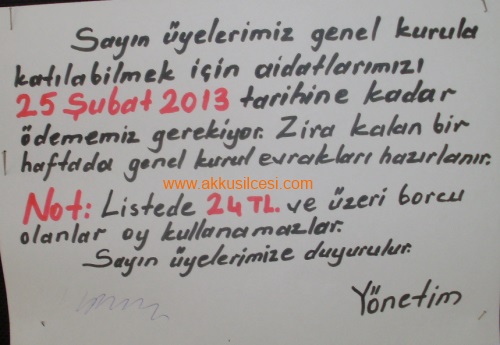 Sayın üyelerimiz genel kurula
katılabilmek için aidatlarımızı
25 Şubat 2013 tarihine kadar
ödememiz gerekiyor. Zira kalan bir
haftada genel kurul evrakları hazırlanır.
www.akkusilcesi.com
Not: Listede 24 TL. ve üzeri borcu
olanlar oy kullanamazlar.
Sayın üyelerimize duyurulur.
Yönetim